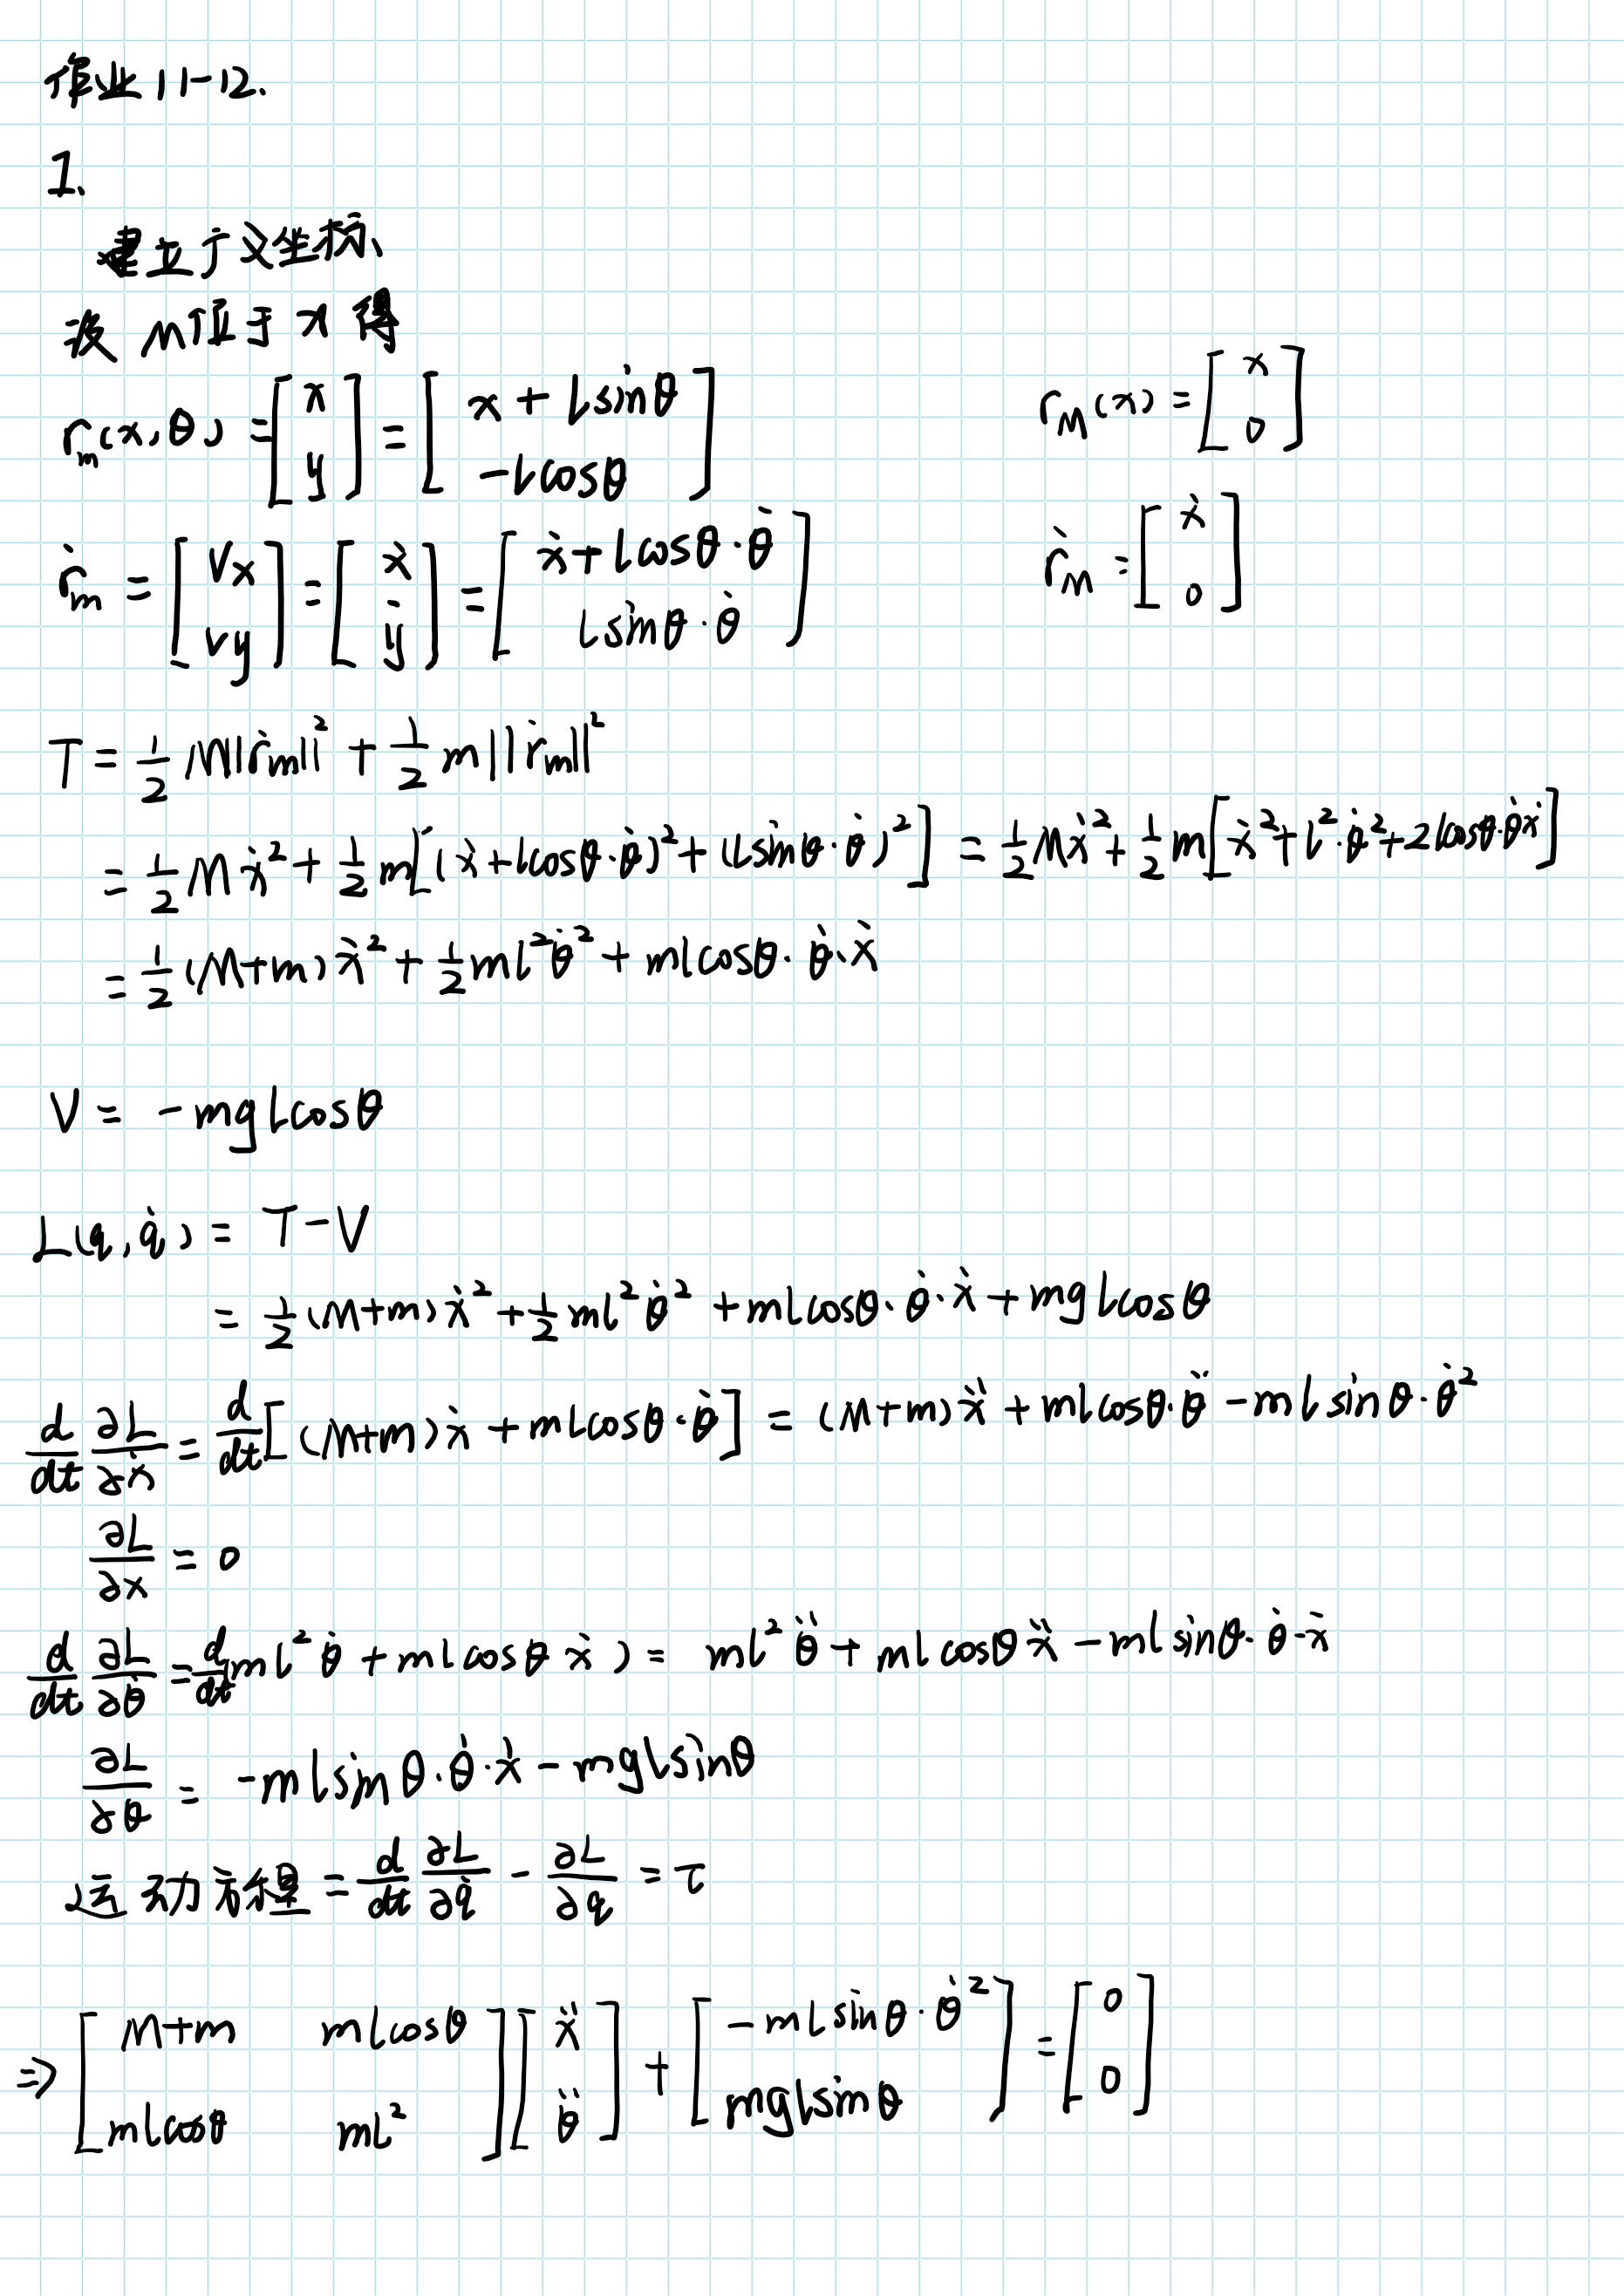 作业11-12.
1.
建立广义坐标、
设 M位于 x 得
r_m(x,θ,) = [x; y] = [x + lsinθ; -lcosθ]
r_M(x) = [x; 0]
ṙ_m = [Vx; vy] = [ẋ; ẏ] = [ẋ + lcosθ·θ̇; lsinθ·θ̇]
ṙ_M = [ẋ; 0]
T = 1/2 M||ṙ_M||² + 1/2 m||ṙ_m||²
= 1/2 Mẋ² + 1/2 m[(ẋ + lcosθ·θ̇)² + (lsinθ·θ̇)²] = 1/2 Mẋ² + 1/2 m[ẋ² + l²·θ̇² + 2lcosθ·θ̇ẋ]
= 1/2 (M+m)ẋ² + 1/2 ml²θ̇² + mlcosθ·θ̇·ẋ
V = -mglcosθ
L(q, q̇) = T-V
= 1/2 (M+m)ẋ² + 1/2 ml²θ̇² + mlcosθ·θ̇·ẋ + mglcosθ
d/dt ∂L/∂ẋ = d/dt[(M+m)ẋ + mlcosθ·θ̇] = (M+m)ẍ + mlcosθ·θ̈ - mlsinθ·θ̇²
∂L/∂x = 0
d/dt ∂L/∂θ̇ = d/dt(ml²θ̇ + mlcosθ ẋ) = ml²θ̈ + mlcosθẍ - mlsinθ·θ̇·ẋ
∂L/∂θ = -mlsinθ·θ̇·ẋ - mglsinθ
运动方程 = d/dt ∂L/∂q̇ - ∂L/∂q = τ
⇒ [M+m mlcosθ; mlcosθ ml²][ẍ; θ̈] + [-mlsinθ·θ̇²; mglsinθ] = [0; 0]